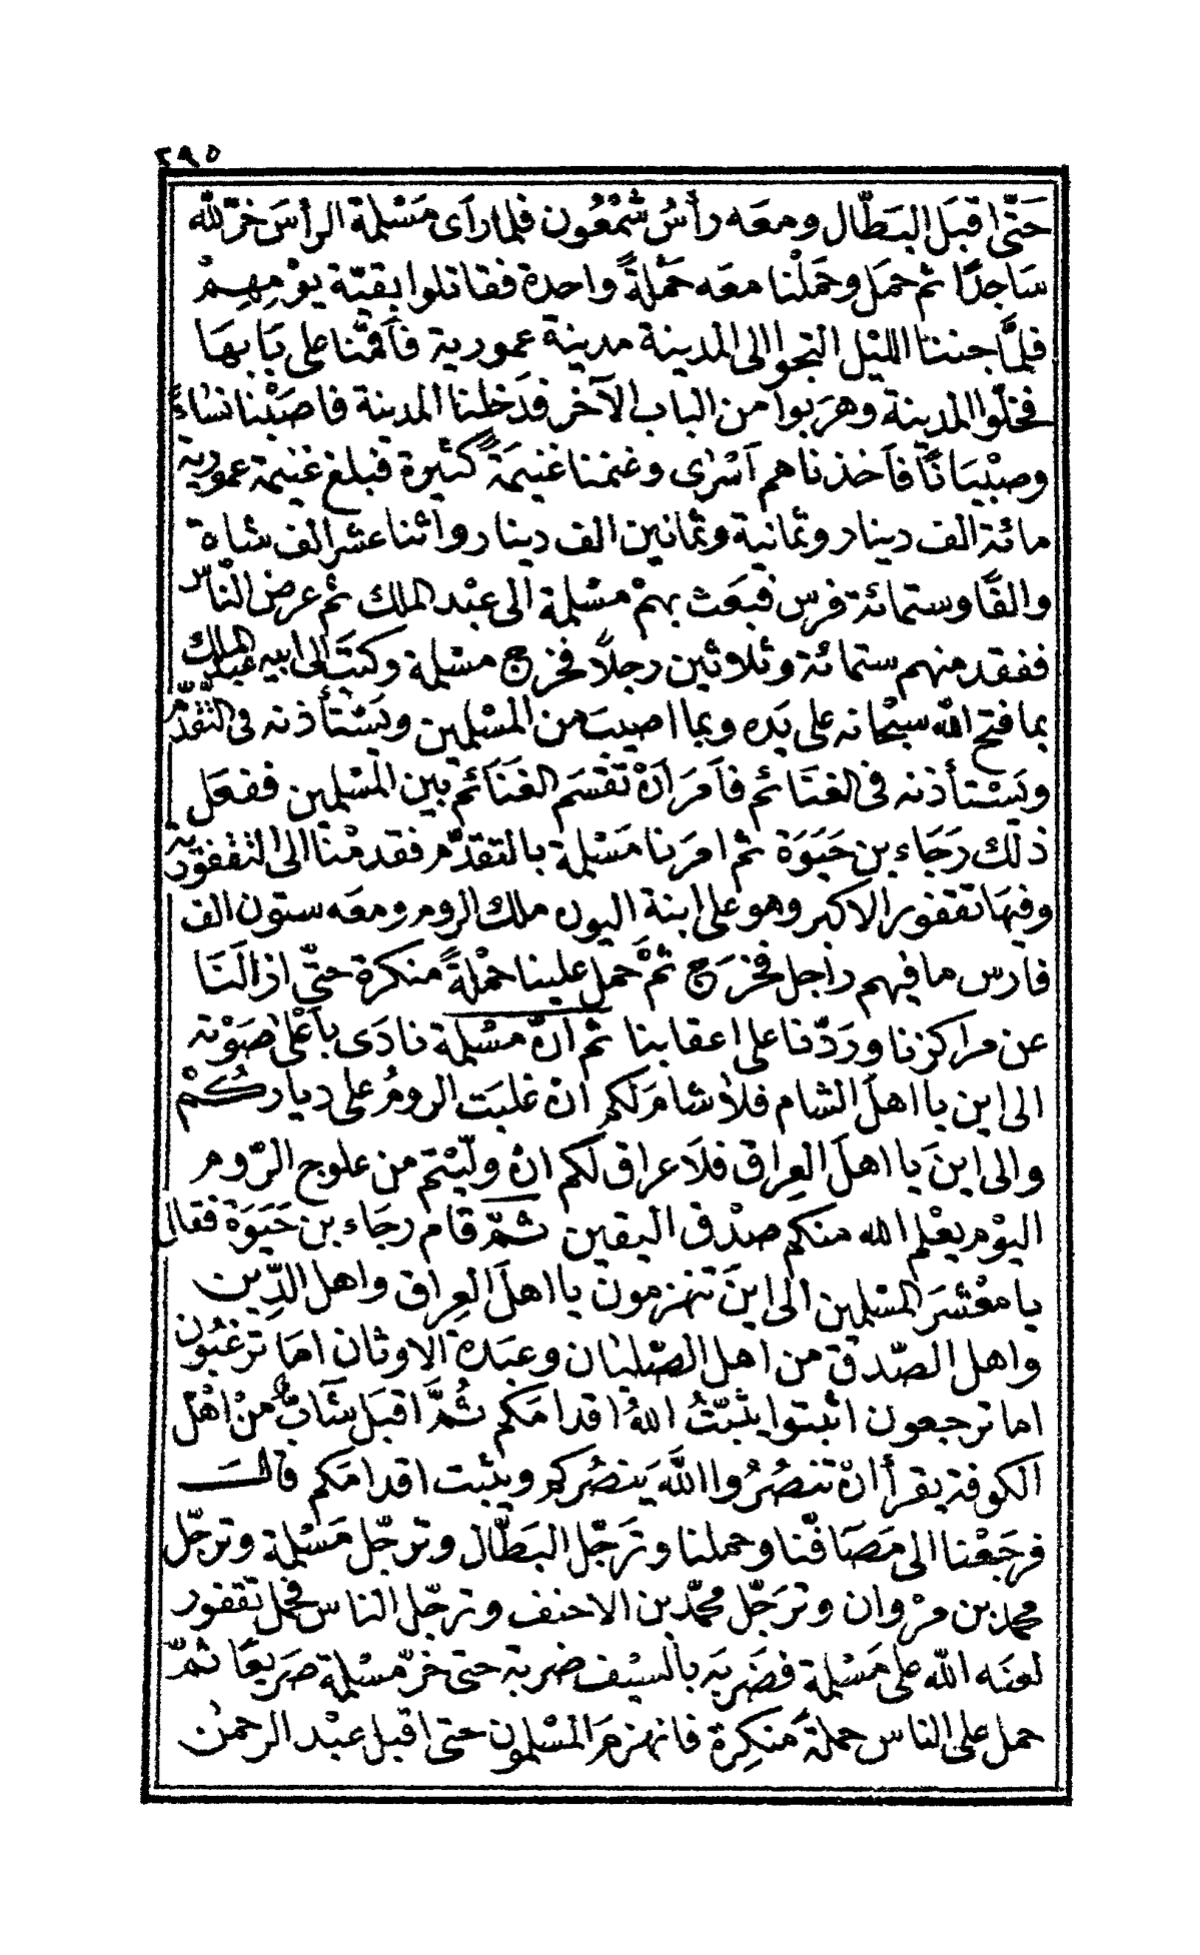 ٢٩٥
حَتّٰى اقبَلَ البَطّال ومعَه رأسُ شَمْعُون فلما رَآى مَسْلمة الرأسَ خرّ لله
سَاجدًا ثم حمَل وحَمَلْنا معَه حَمْلةً واحدة فقاتلوا بقيّة يوْمِهِمْ
فلمَّا جننا الليْل التجوا الى المدينة مدينة عمورية فأقمْنا على بَابهَا
فخلّوا المدينة وهرَبوا من الباب الآخر فدَخلنا المدينة فاصَبْنا نسَاءً
وصبْيَانًا فأخذناهم آسْرٰى وغنمنا غنيمَةً كثيرة فبلغ غنيمة عمورية
مائة الف دينار وثمانية وثمانين الف دينار واثنا عشر الف شاة
والفًا وستمائة فرس فبعَث بهمْ مسْلمة الى عبْد الملك ثم عرضَ النّاسَ
ففقد منهم ستمائة وثلاثين رجلًا فخرج مسْلمة وكتَبَ الى ابيه عبد الملك
بما فتح الله سبْحانه على يَده وبما اصيبَ من المسْلمين ويَسْتأذنه فى التّقدّم
ويَسْتأذنه فى الغنَائم فآمَرَ أنْ تقسَم الغنَائم بين المسْلمين ففعَل
ذلك رَجَاء بن حَيَوَة ثم امرَنا مَسْلمة بالتقدّم فقدمْنا الى النقفورية
وفيهَا نقفور الاكبر وهو على ابنة اليون ملك الروم ومعَه ستون الف
فارس ما فيهم راجل فخرَج ثمّ حمل علينا حمْلةً منكرة حتّى ازالَنَا
عن مراكزنا وردّنا على اعقابنا ثم انّ مسْلمة نادَى بأعْلٰى صَوْته
الى اين يا اهلَ الشام فلا شامَ لكم ان غلبَت الرومُ على دياركُمْ
والى اينَ يا اهلَ العِراق فلَا عراق لكم ان ولّيْتم من علوج الرّوم
اليوْم يعْلم الله منكم صدْق اليقين ثمّ قام رجَاء بن حَيَوَة فقال
يا معْشرَ المسْلمين الى اينَ تنهزمون يا اهلَ العِراق واهل الدِّين
واهل الصّدق من اهل الصّلبان وعبَدة الاوثان امَا ترغبُون
اما ترجعون اثبتوا يثبّتُ اللهُ اقدامَكم ثُمَّ اقبَل شَابٌّ منْ اهْل
الكوفة يقرأ انْ تنصُرُوا اللهَ يَنصُركم ويثبت اقدامَكم قالَ
فرجَعْنا الى مَصَافّنا وحملنا وتَرَجّل البَطّال وترجّل مَسْلمة وترجّل
محمد بن مرْوان وترَجّل محمّد بن الاحنف وترجّل الناس فحمل نقفور
لعنه الله على مَسْلمة فضَربَه بالسيْف ضربة حتى خرّ مسْلمة صَريعًا ثمّ
حمل على الناس حملةً منكِرة فانهزمَ المسْلمون حتى اقبل عبْد الرحمٰن